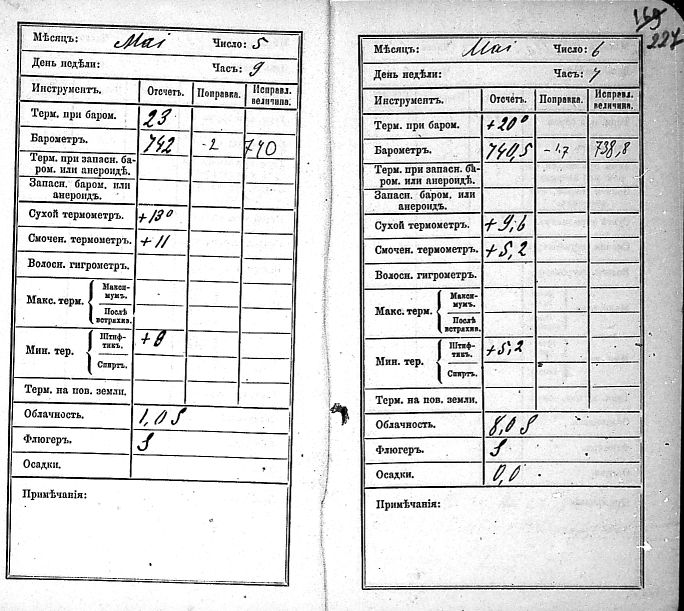 Мѣсяцъ: Mai Число: 5
День недѣли: Часъ: 9
Инструментъ. Отсчетъ. Поправка. Исправл. величина.
Терм. при баром. 23
Барометръ. 742 -2 740
Терм. при запасн. ба-
ром. или анероидѣ.
Запасн. баром. или
анероидъ.
Сухой термометръ. +13°
Смочен. термометръ. +11
Волосн. гигрометръ.
Макс. терм. Макси-
мумъ.
Послѣ
встряхив.
Мин. тер. Штиф-
тикъ. +8
Спиртъ.
Терм. на пов. земли.
Облачность. 1,0 S
Флюгеръ. S
Осадки.
Примѣчанія:
169
227
Мѣсяцъ: Mai Число: 6
День недѣли: Часъ: 7
Инструментъ. Отсчетъ. Поправка. Исправл. величина.
Терм. при баром. +20°
Барометръ. 740,5 -1,7 738,8
Терм. при запасн. ба-
ром. или анероидѣ.
Запасн. баром. или
анероидъ.
Сухой термометръ. +9,6
Смочен. термометръ. +5,2
Волосн. гигрометръ.
Макс. терм. Макси-
мумъ.
Послѣ
встряхив.
Мин. тер. Штиф-
тикъ. +5,2
Спиртъ.
Терм. на пов. земли.
Облачность. 8,0 S
Флюгеръ. S
Осадки. 0,0
Примѣчанія: